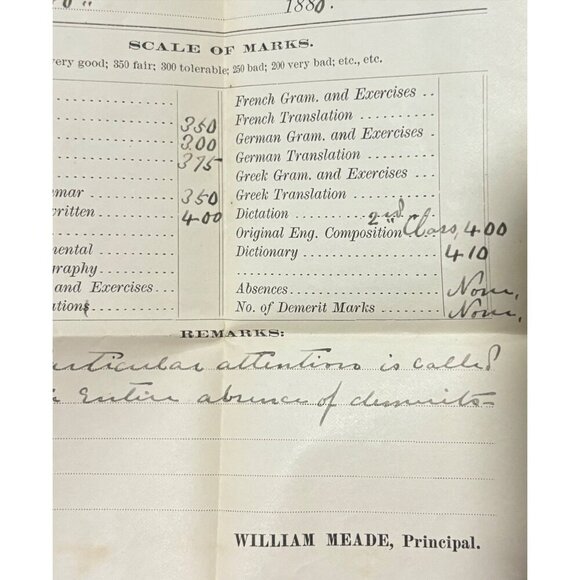 1880.
SCALE OF MARKS.
very good; 350 fair; 300 tolerable; 250 bad; 200 very bad; etc., etc.
350
300
375
mar ........ 350
written ........ 400
mental ........
graphy........
and Exercises ...
ations ........
French Gram. and Exercises ..
French Translation ........
German Gram. and Exercises ..
German Translation ........
Greek Gram. and Exercises ...
Greek Translation ........
Dictation ........ 2nd
Original Eng. Composition Class, 400
Dictionary ........ 410
........
Absences ........ None,
No. of Demerit Marks ........ None,
REMARKS:
articular attention is called
entire absence of demerits—
WILLIAM MEADE, Principal.